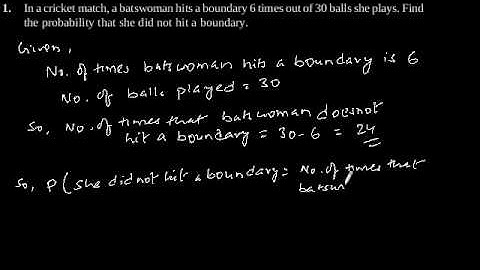 1. In a cricket match, a batswoman hits a boundary 6 times out of 30 balls she plays. Find
the probability that she did not hit a boundary.
Given,
No. of times batswoman hits a boundary is 6
No. of balls played = 30
So, No. of times that batwoman doesnot
hit a boundary = 30-6 = 24
So, P ( she did not hit a boundary = No. of times that
batsw